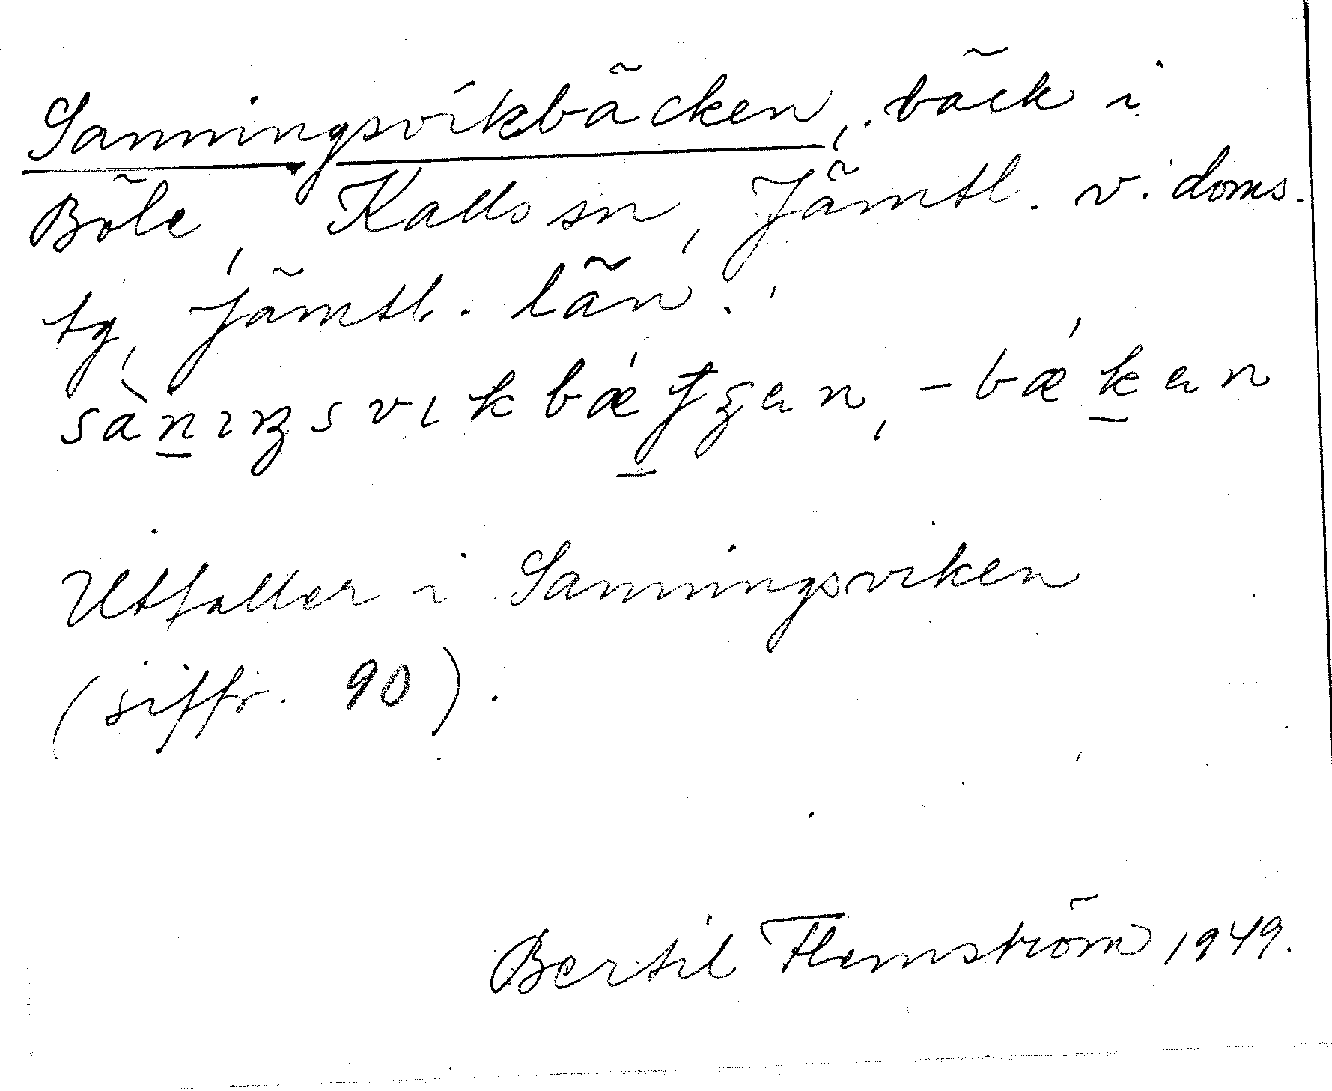 Sanningsvikbäcken, bäck i
Böle, Kalls sn, Jämtl. v. doms.
tg, Jämtl. län.
sàn̲ıŋsvıkbǽt̲ʃen, -bǽk̲en
Utfaller i Sanningsviken
(siffr. 90).
Bertil Flemström 1949.